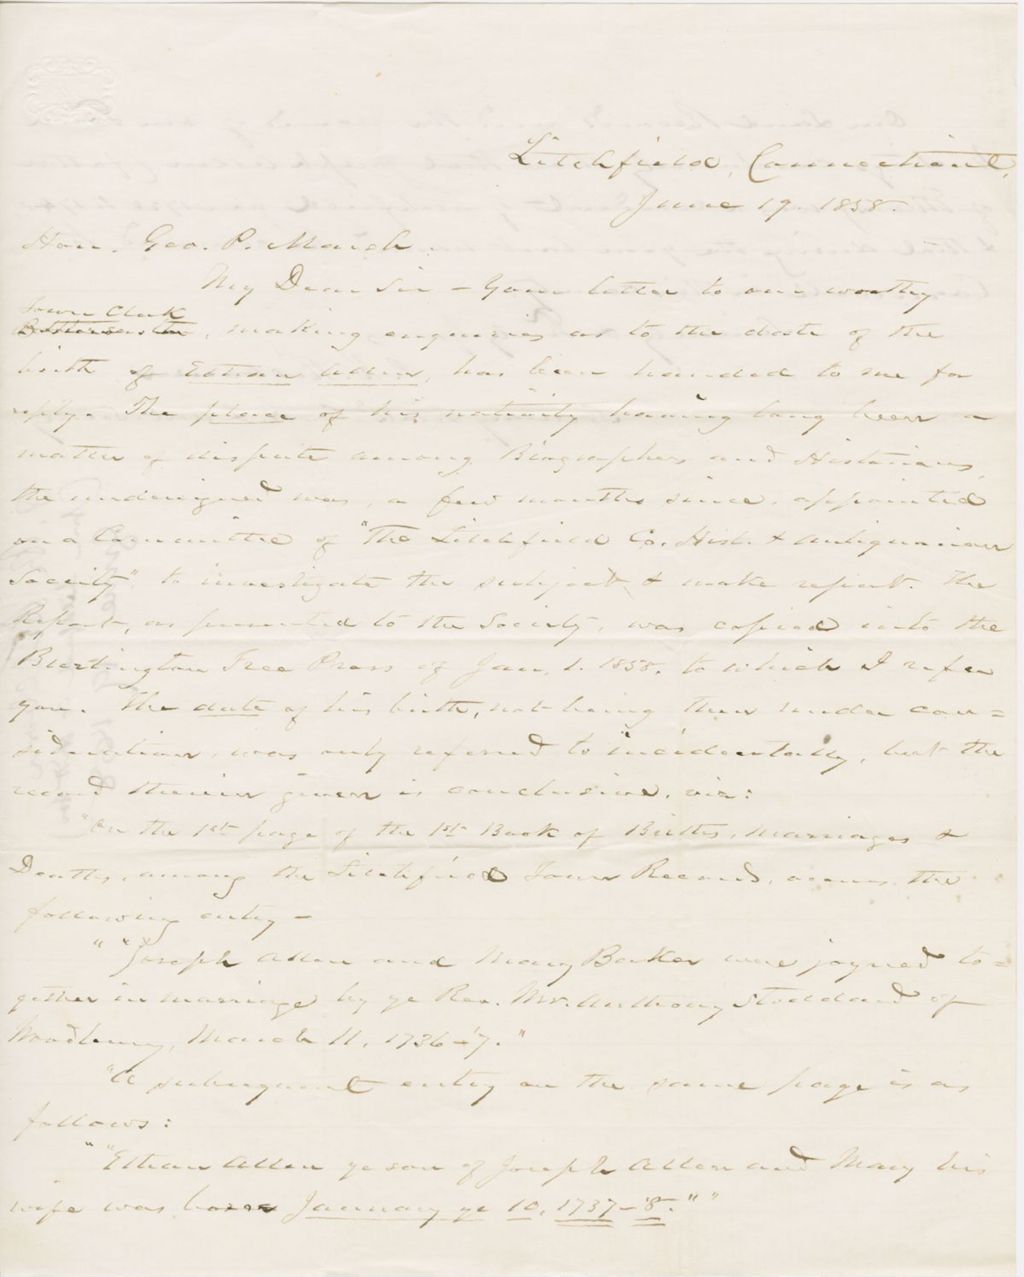 Litchfield, Connecticut,
June 19. 1858.
Hon. Geo. P. Marsh.
My Dear Sir - Your letter to our worthy
Town Clerk
Postmaster, making enquiries as to the date of the
birth of Ethan Allen, has been handed to me for
reply. The place of his nativity having long been a
matter of dispute among Biographers and Historians,
the undersigned was, a few months since, appointed
on a Committee of "The Litchfield Co. Hist. & Antiquarian
Society" to investigate the subject & make report. The
Report, as presented to the Society, was copied into the
Burlington Free Press of Jan. 1. 1858. to which I refer
you. The date of his birth, not being then under con=
sideration, was only referred to incidentally, but the
record therein given is conclusive, viz:
"On the 1st page of the 1st Book of Births, Marriages &
Deaths, among the Litchfield Town Records, occurs the
following entry -
" "Joseph Allen and Mary Baker were joyned to=
gether in marriage by ye Rev. Mr. Anthony Stoddard of
Woodbury, March 11, 1736-'7."
"A subsequent entry on the same page is as
follows:
" "Ethan Allen ye son of Joseph Allen and Mary his
wife was born January ye 10, 1737-'8." "